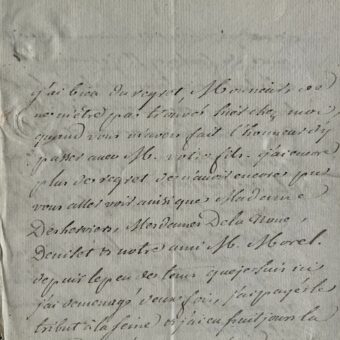 j'ai bien du regret Monsieur de
ne m'être pas trouvé hier chez moi,
quand vous m'avez fait l'honneur d'y
passer avec M. votre fils. j'ai encore
plus de regret de n'avoir encore pu
vous aller voir ainsi que Madame
Desherviers, Mesdames De la Noue,
Denisot & notre ami M. Morel.
depuis le peu de tems que je suis ici
j'ai demenagé deux fois, j'ai payé le
tribut à la seine et j'ai eu huit jours la